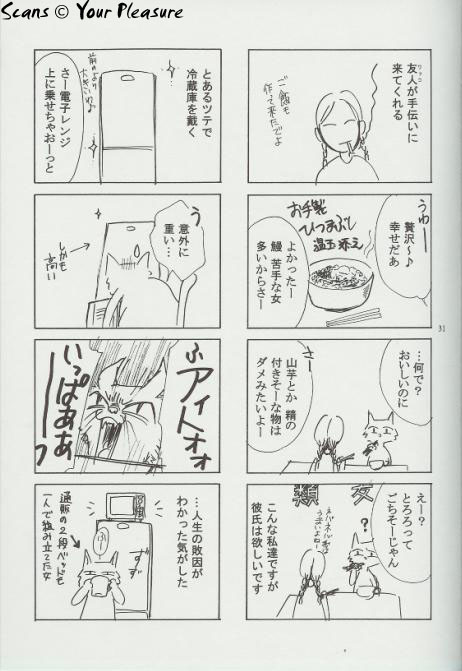 Scans © Your Pleasure
友人が手伝いに
来てくれる
ご飯も
作って来たでよ
うゆー
贅沢～♪
幸せだあ
お手製
ひつまぶし
温玉添え
よかったー
鰻 苦手な女
多いからさー
…何で?
おいしいのに
さー
山芋とか 精の
付きそーな物は
ダメみたいよー
えー?
とろろって
ごちそーじゃん
?
こんな私達ですが
彼氏は欲しいです
31
とあるツテで
冷蔵庫を戴く
前のより
大きいわよ
さー電子レンジ
上に乗せちゃおーっと
う
意外に
重い…
しかも
高い
ふァイトォォ
いっぱああーつ
…人生の敗因が
わかった気がした
ずず
ふー
通販の2段ベッドも
一人で組み立てた女